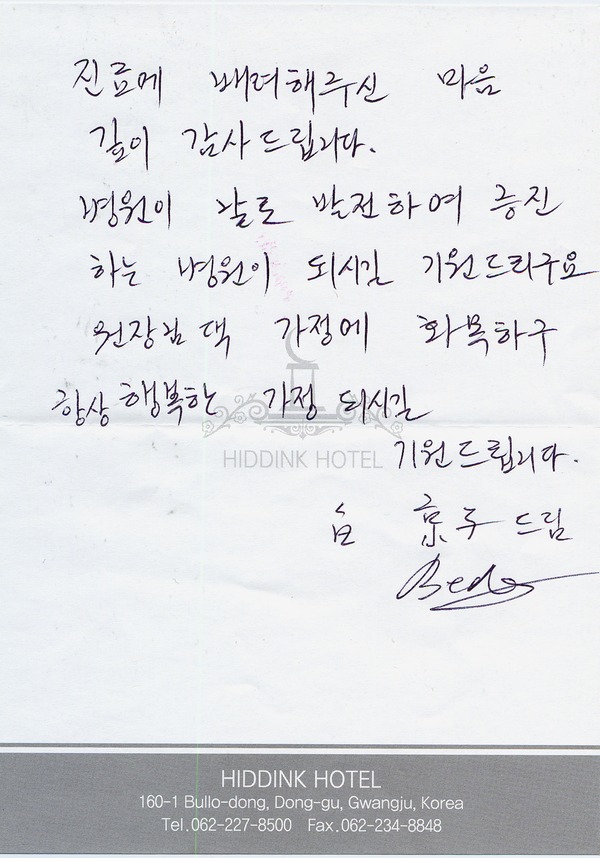 진료에 배려해주신 마음
깊이 감사드립니다.
병원이 날로 발전하여 증진
하는 병원이 되시길 기원드리구요
원장님 댁 가정에 화목하구
항상 행복한 가정 되시길
HIDDINK HOTEL
기원드립니다.
白 京子 드림
HIDDINK HOTEL
160-1 Bullo-dong, Dong-gu, Gwangju, Korea
Tel.062-227-8500 Fax.062-234-8848